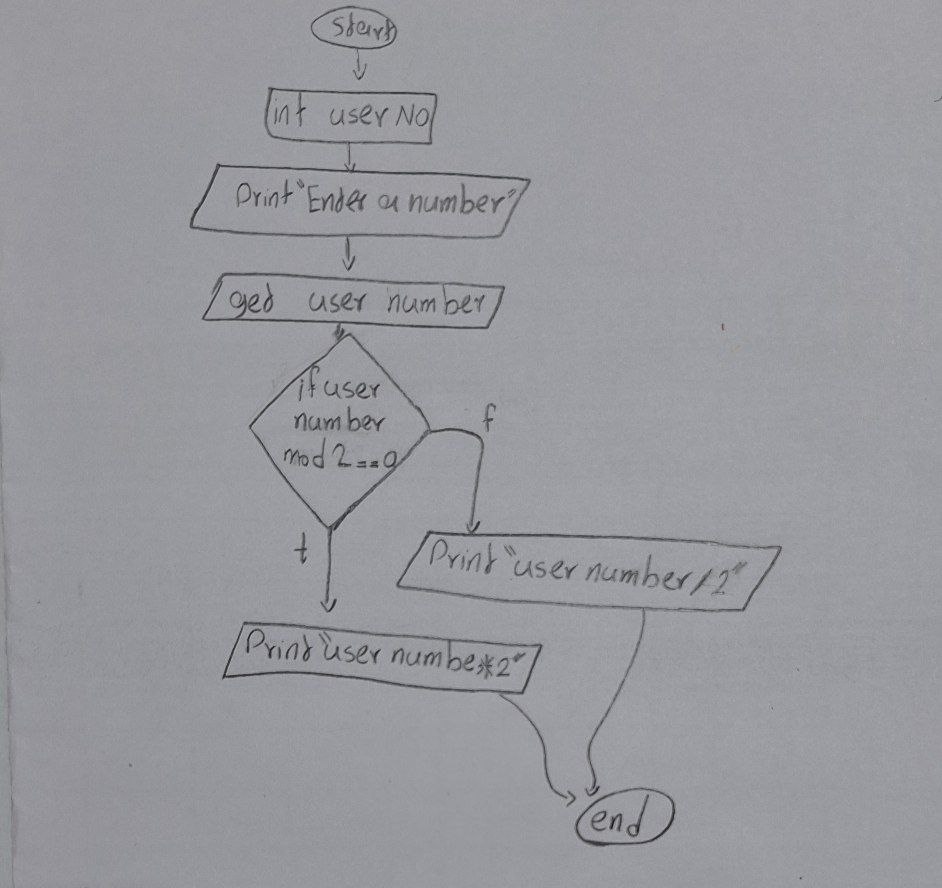 start
int user No
Print "Enter a number"
get user number
if user
number
mod 2 == 0
f
t
Print "user number / 2"
Print "user numbe*2"
end